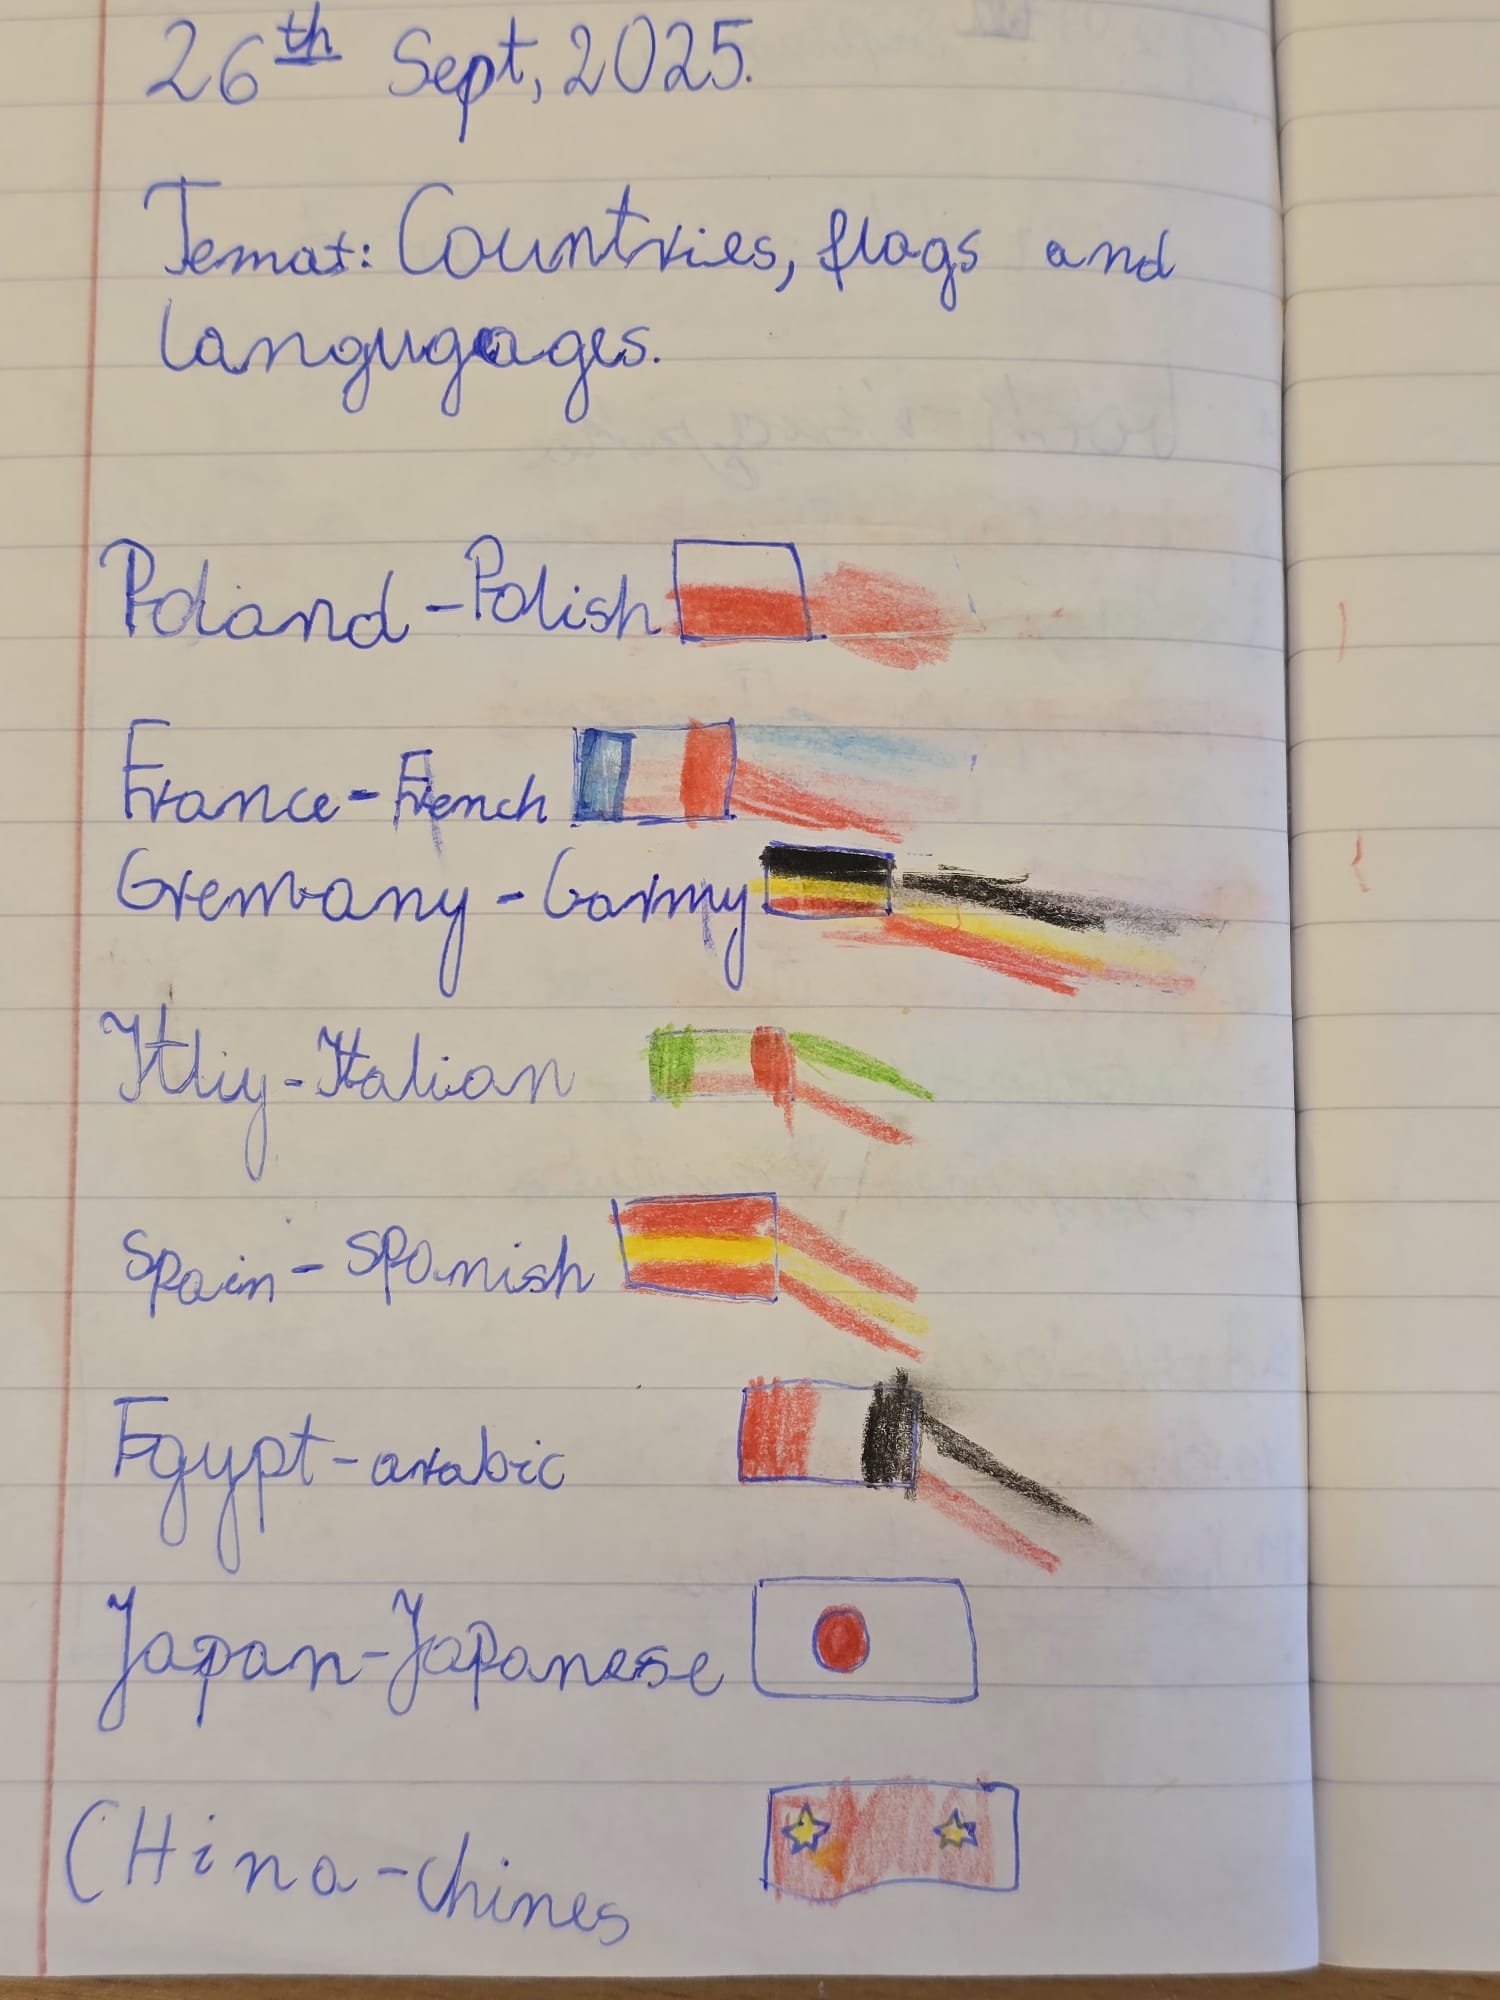 26th Sept, 2025.
Temat: Countries, flags and
langugeages.
Poland - Polish
France - French
Grembany - Garmy
Itliy - Italian
Spain - Spanish
Egypt - arabic
Japan - Japanese
CHina - chines